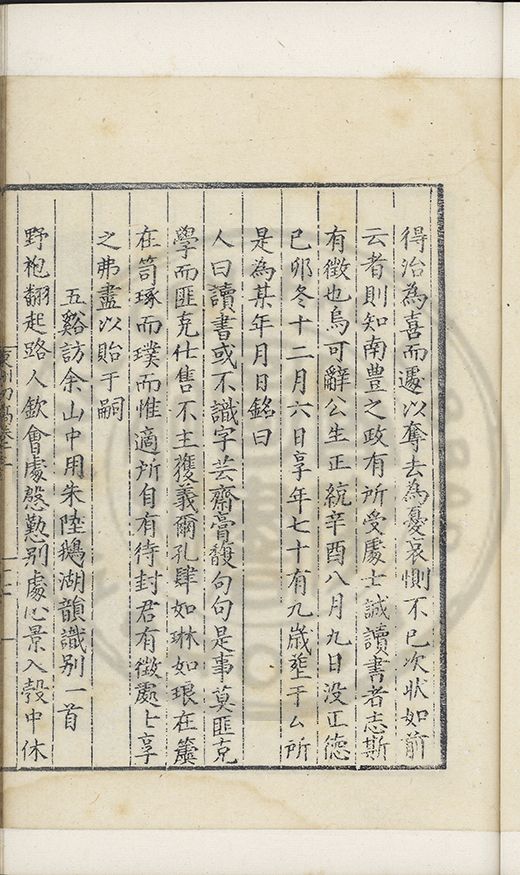 得治為喜而遽以奪去為憂哀惻不已次狀如前
云者則知南豐之政有所受處士誠讀書者志斯
有徵也烏可辭公生正統辛酉八月九日没正德
已卯冬十二月六日享年七十有九歲塟于厶所
是為某年月日銘曰
人曰讀書或不識字芸齋膏馥句句是事莫匪克
學而匪克仕售不主獲義爾孔肆如琳如琅在籝
在笥琢而璞而惟適所自有待封君有徵處士享
之弗盡以貽于嗣
五谿訪余山中用朱陸鵝湖韻識别一首
野袍翻起路人欽會處慇懃别處心景入彀中休